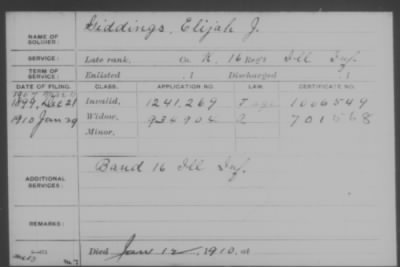 NAME OF SOLDIER: Giddings, Elijah J.
SERVICE: Late rank, Co. K, 16 Reg't Ill Inf.
TERM OF SERVICE: Enlisted , 1 Discharged , 1
DATE OF FILING. CLASS. APPLICATION NO. LAW. CERTIFICATE NO.
1899, Dec 21 Invalid, 1241,269 1006549
1910 Jan 29 Widow, 934904 701568
Minor,
ADDITIONAL SERVICES: Band 16 Ill Inf.
REMARKS:
Died Jan 12, 1910, at